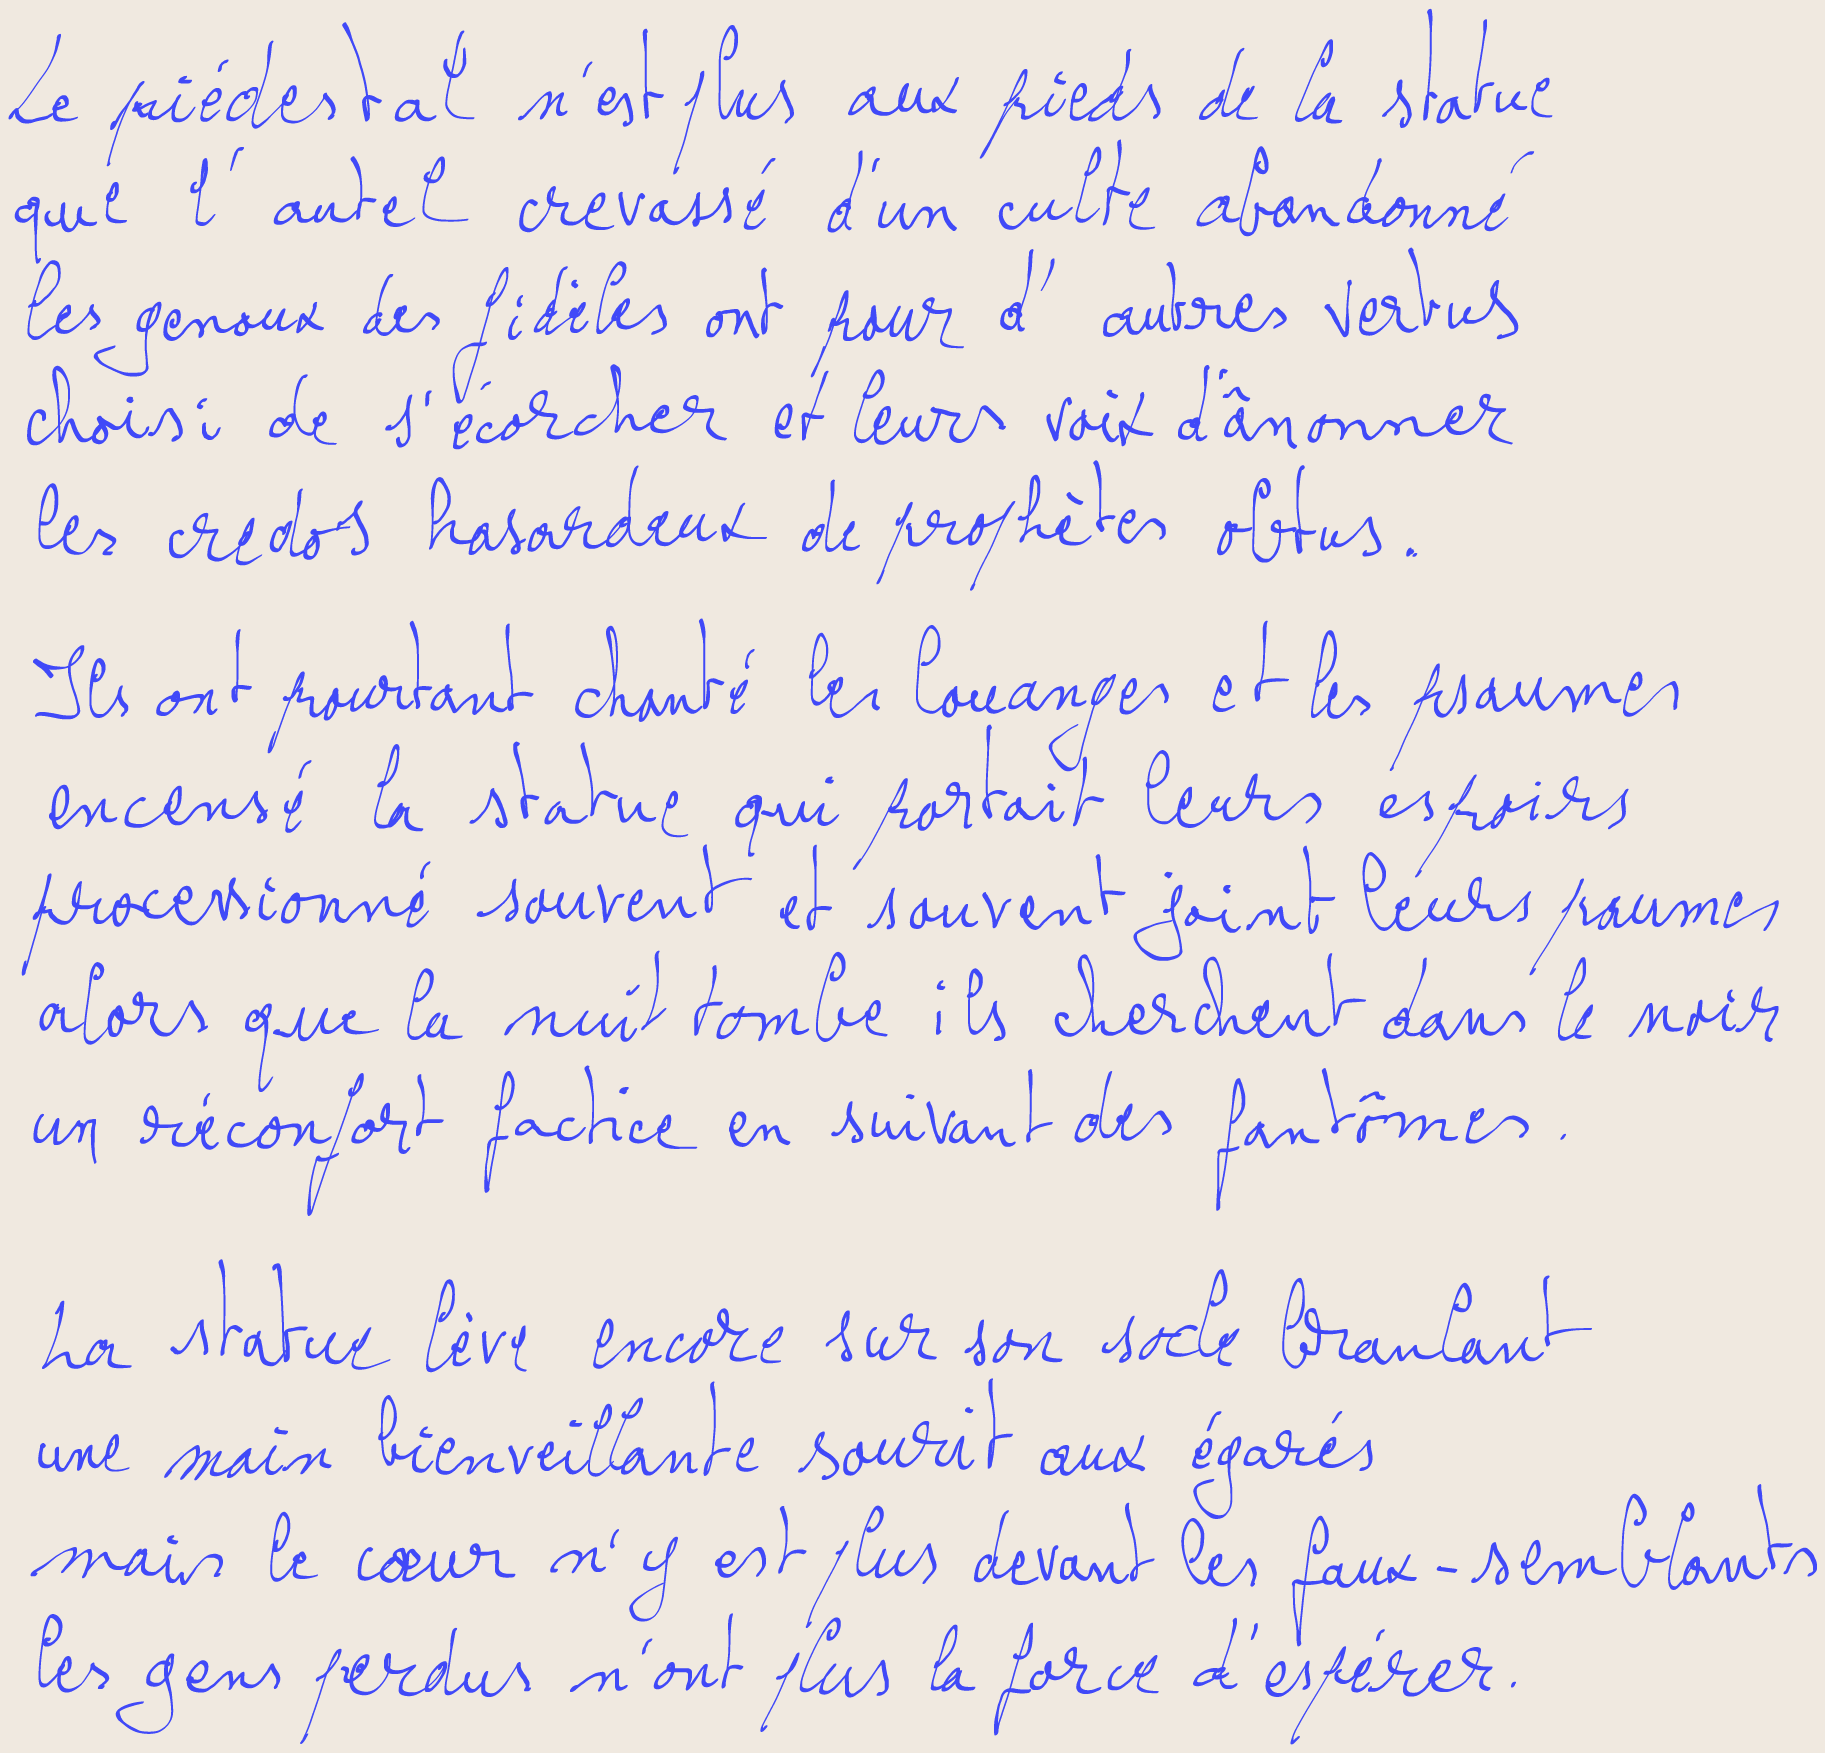 Le piédestal n'est plus aux pieds de la statue
que l'autel crevassé d'un culte abandonné
les genoux des fidèles ont pour d'autres vertus
choisi de s'écorcher et leurs voix d'ânonner
les credos hasardeux de prophètes obtus.
Ils ont pourtant chanté les louanges et les psaumes
encensé la statue qui portait leurs espoirs
processionné souvent et souvent joint leurs paumes
alors que la nuit tombe ils cherchent dans le noir
un réconfort factice en suivant des fantômes.
La statue lève encore sur son socle branlant
une main bienveillante sourit aux égarés
mais le cœur n'y est plus devant les faux-semblants
les gens perdus n'ont plus la force d'espérer.